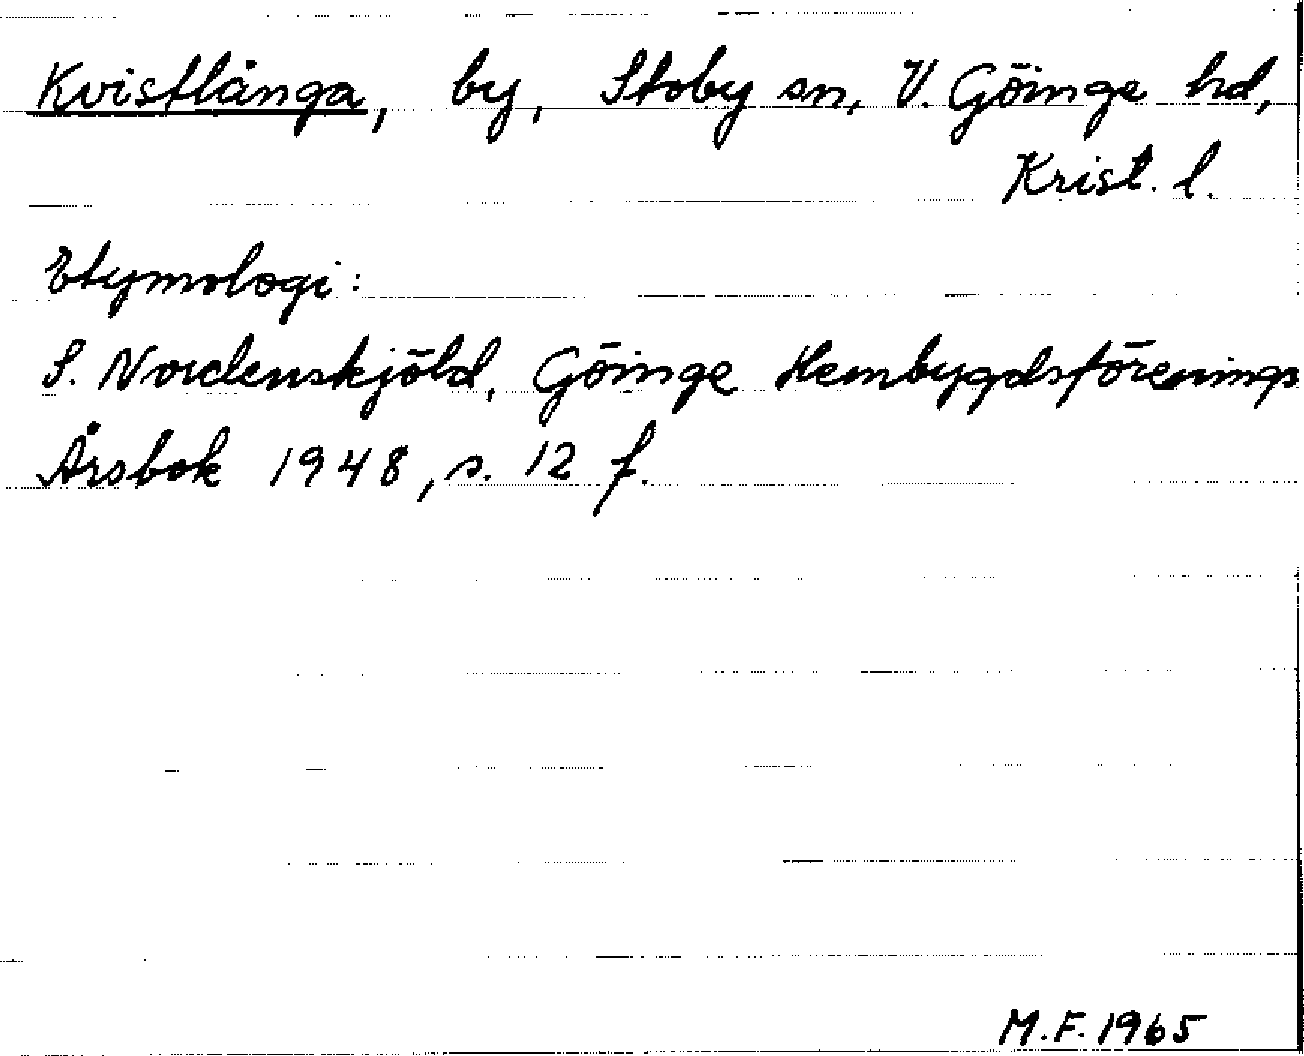 Kvistlånga, by, Stoby sn, V. Göinge hd,
Krist. l.
Etymologi:
S. Nordenskjöld, Göinge Hembygdsförenings
Årsbok 1948, s. 12 f.
M.F. 1965